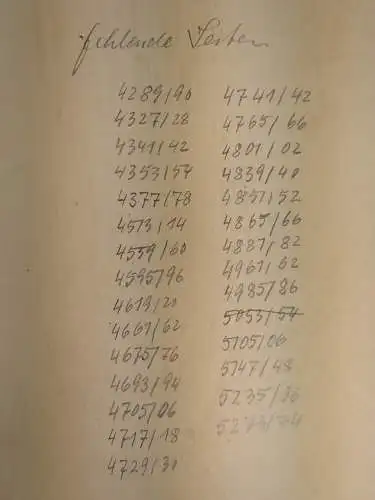 fehlende Seiten
4289/90
4327/28
4341/42
4353/54
4377/78
4513/14
4559/60
4595/96
4619/20
4661/62
4675/76
4693/94
4705/06
4717/18
4729/30
4741/42
4765/66
4801/02
4839/40
4851/52
4865/66
4881/82
4961/62
4985/86
5053/54
5105/06
5147/48
5235/36
5273/74